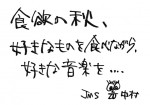 食欲の秋、
好きなものを食べながら、
好きな音楽を....
Jms 中村